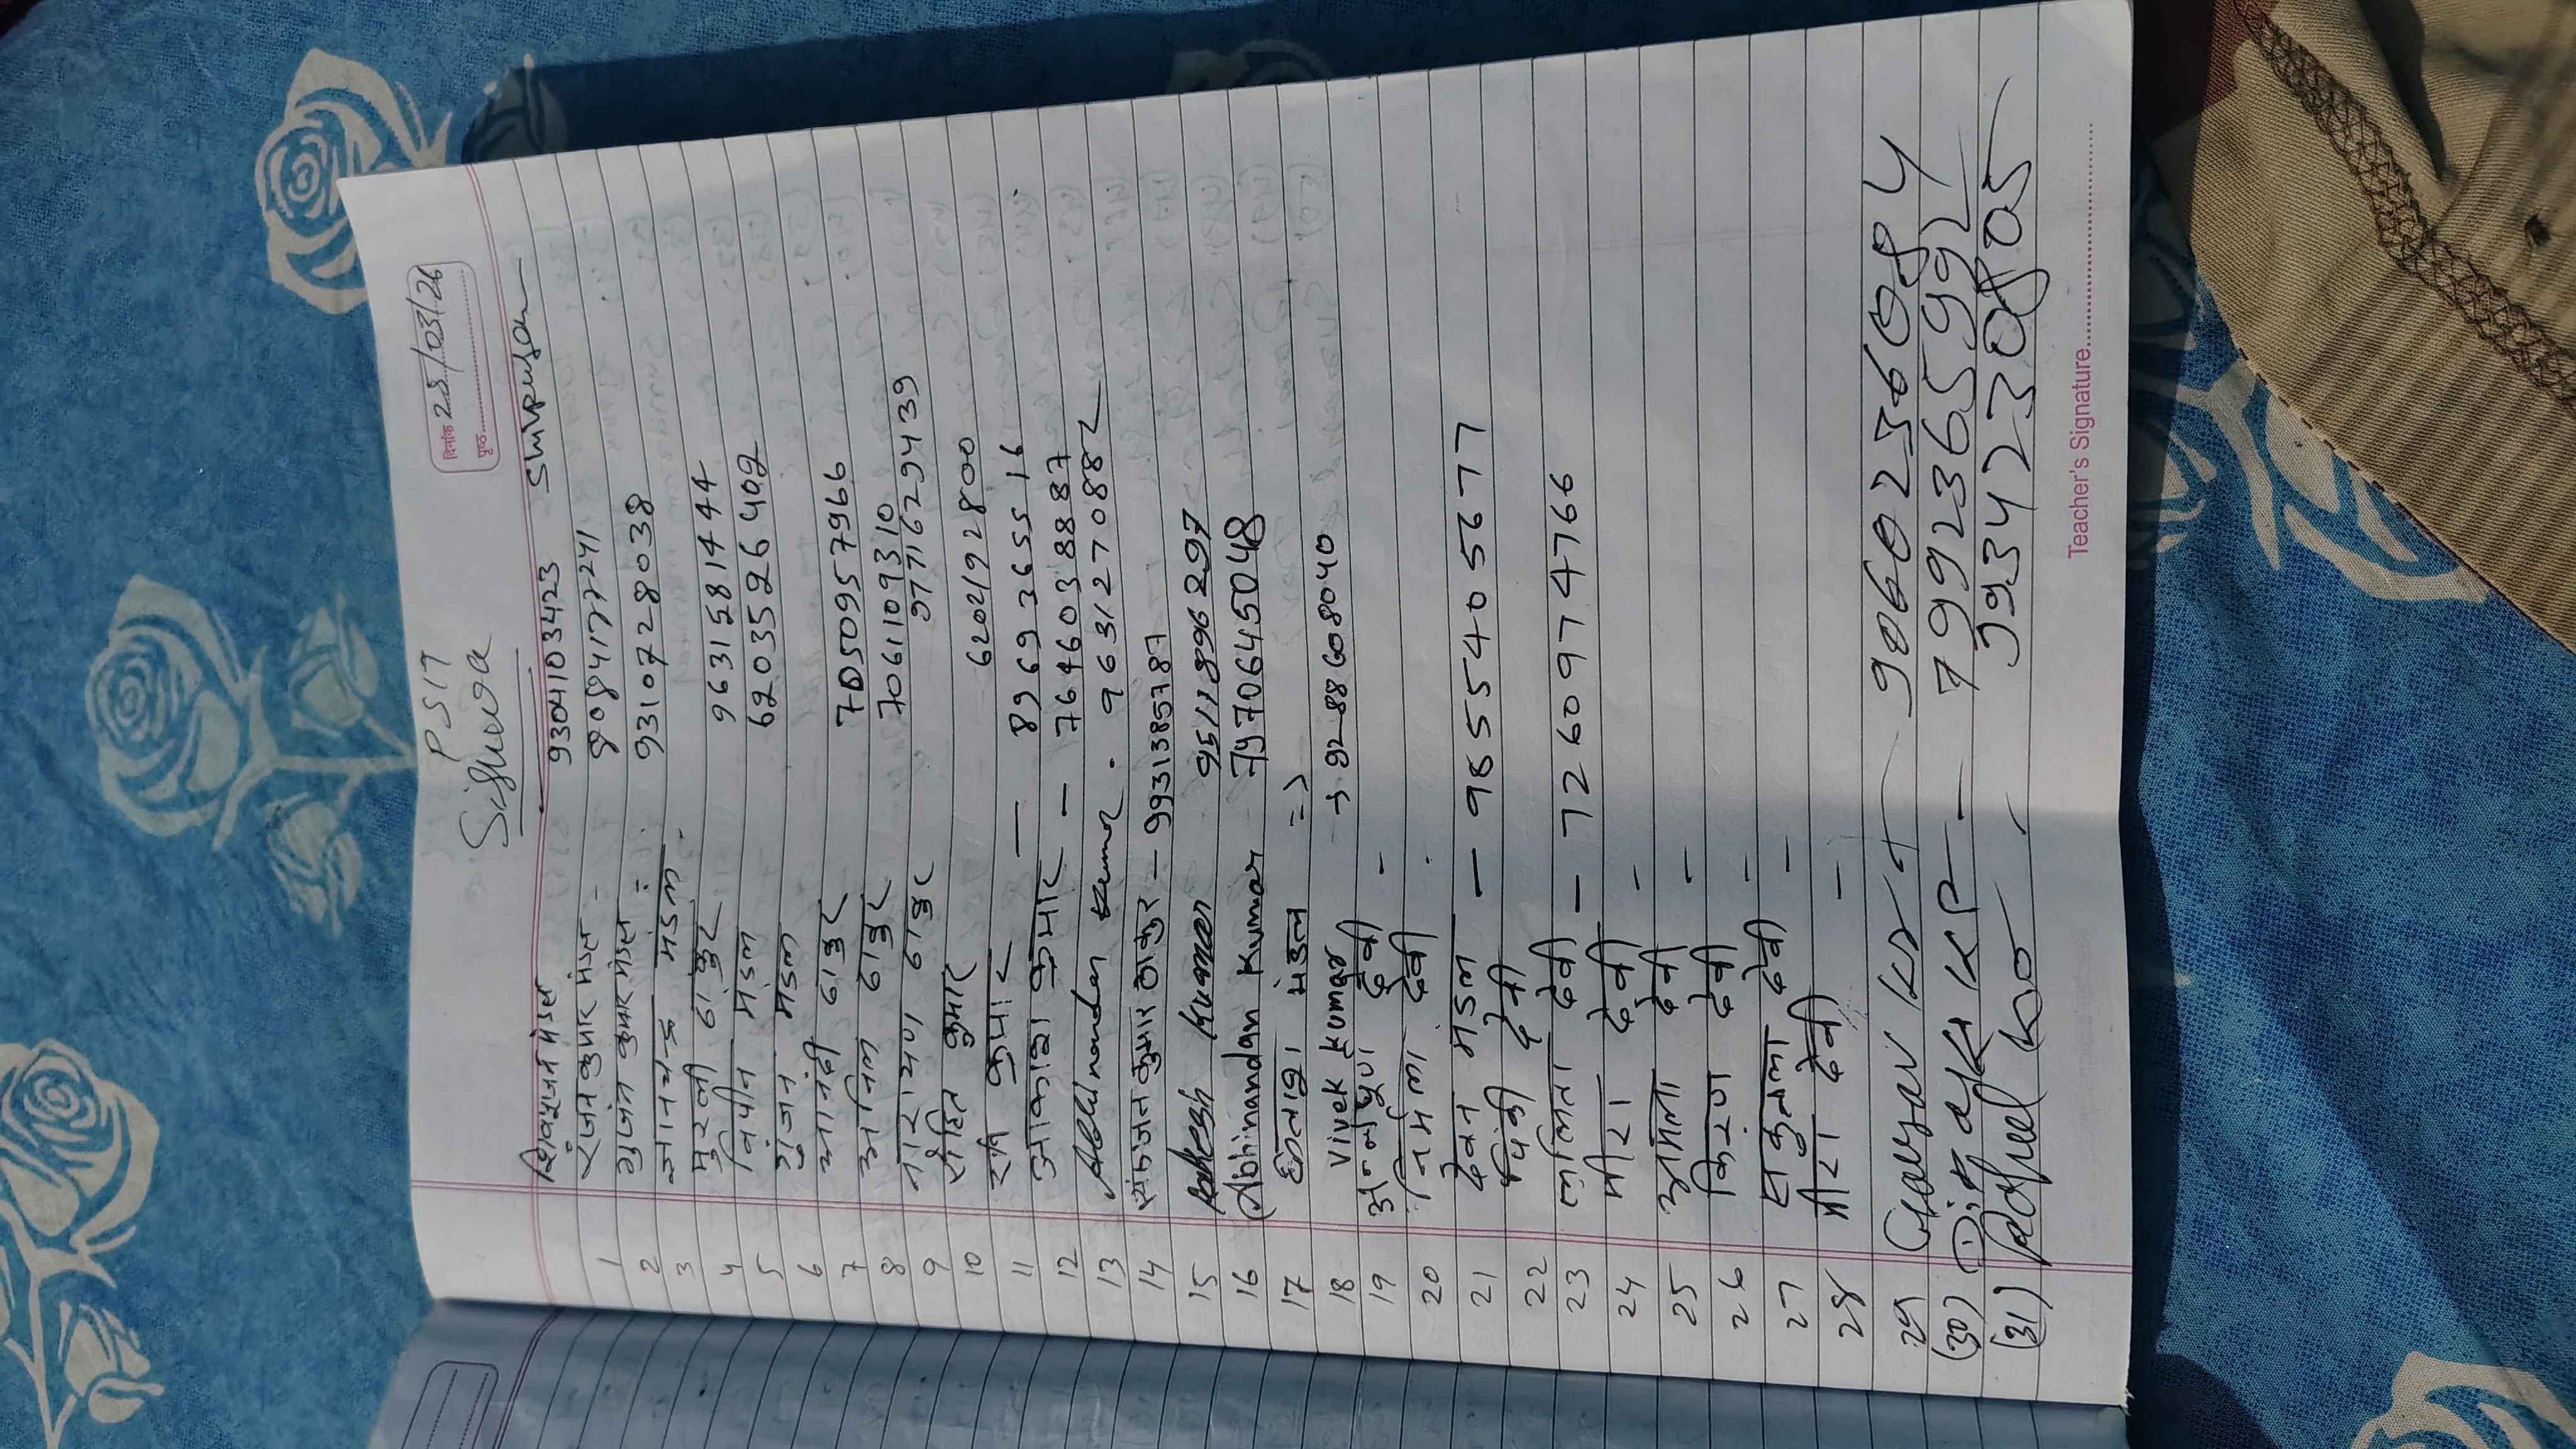 दिनांक 25/03/26
पृष्ठ
PSIT
Sighwoa
9304103423 Shivpujan
1 रंजन कुमार मंडल - 9084177241
2 गुंजन कुमार मंडल : 9310728038
3 मंडल
4 मुरली ठाकुर 9631581444
5 विपीन मंडल 6203526402
6 गुंजन मंडल
7 ठाकुर 7050957966
8 अनिल ठाकुर 7061109310
9 नारायण ठाकुर 9771629439
10 रोहित कुमार 6202192800
11 रवि कुमार — 8969365516
12 आकाश कुमार - 7646038887
13 Abhinandan Kumar . 9631270882
14 कुमार ठाकुर - 9931385787
15 Rakesh Kumar 9511896297
16 Abhinandan Kumar 7970645048
17 मंडल =>
18 Vivek Kumar → 9288608040
19 देवी -
20 निर्मला देवी .
21 देवन मंडल - 9655405677
22 पिंकी देवी
23 ललिता देवी - 7260974766
24 मीरा देवी -
25 देवी -
26 किरण देवी -
27 सकुन्तला देवी -
28 मीरा देवी -
29 9060236084
(30) - 7992365992
(31) 9934230805
Teacher's Signature